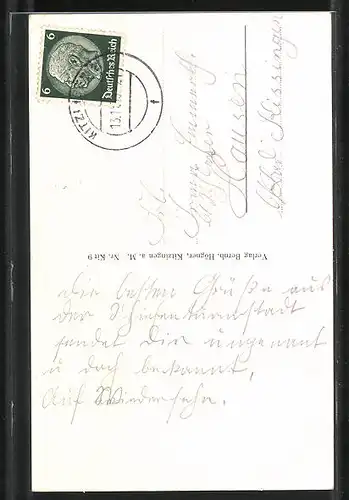 6 6
Deutsches Reich
KITZI
Frl.
Hausen
Bad Kissingen
Verlag Bernh. Högner, Kitzingen a. M. Nr. Kit 9
Die besten Grüße aus
der
sendet Dir ungenant
u doch bekannt,
Auf Wiedersehn.